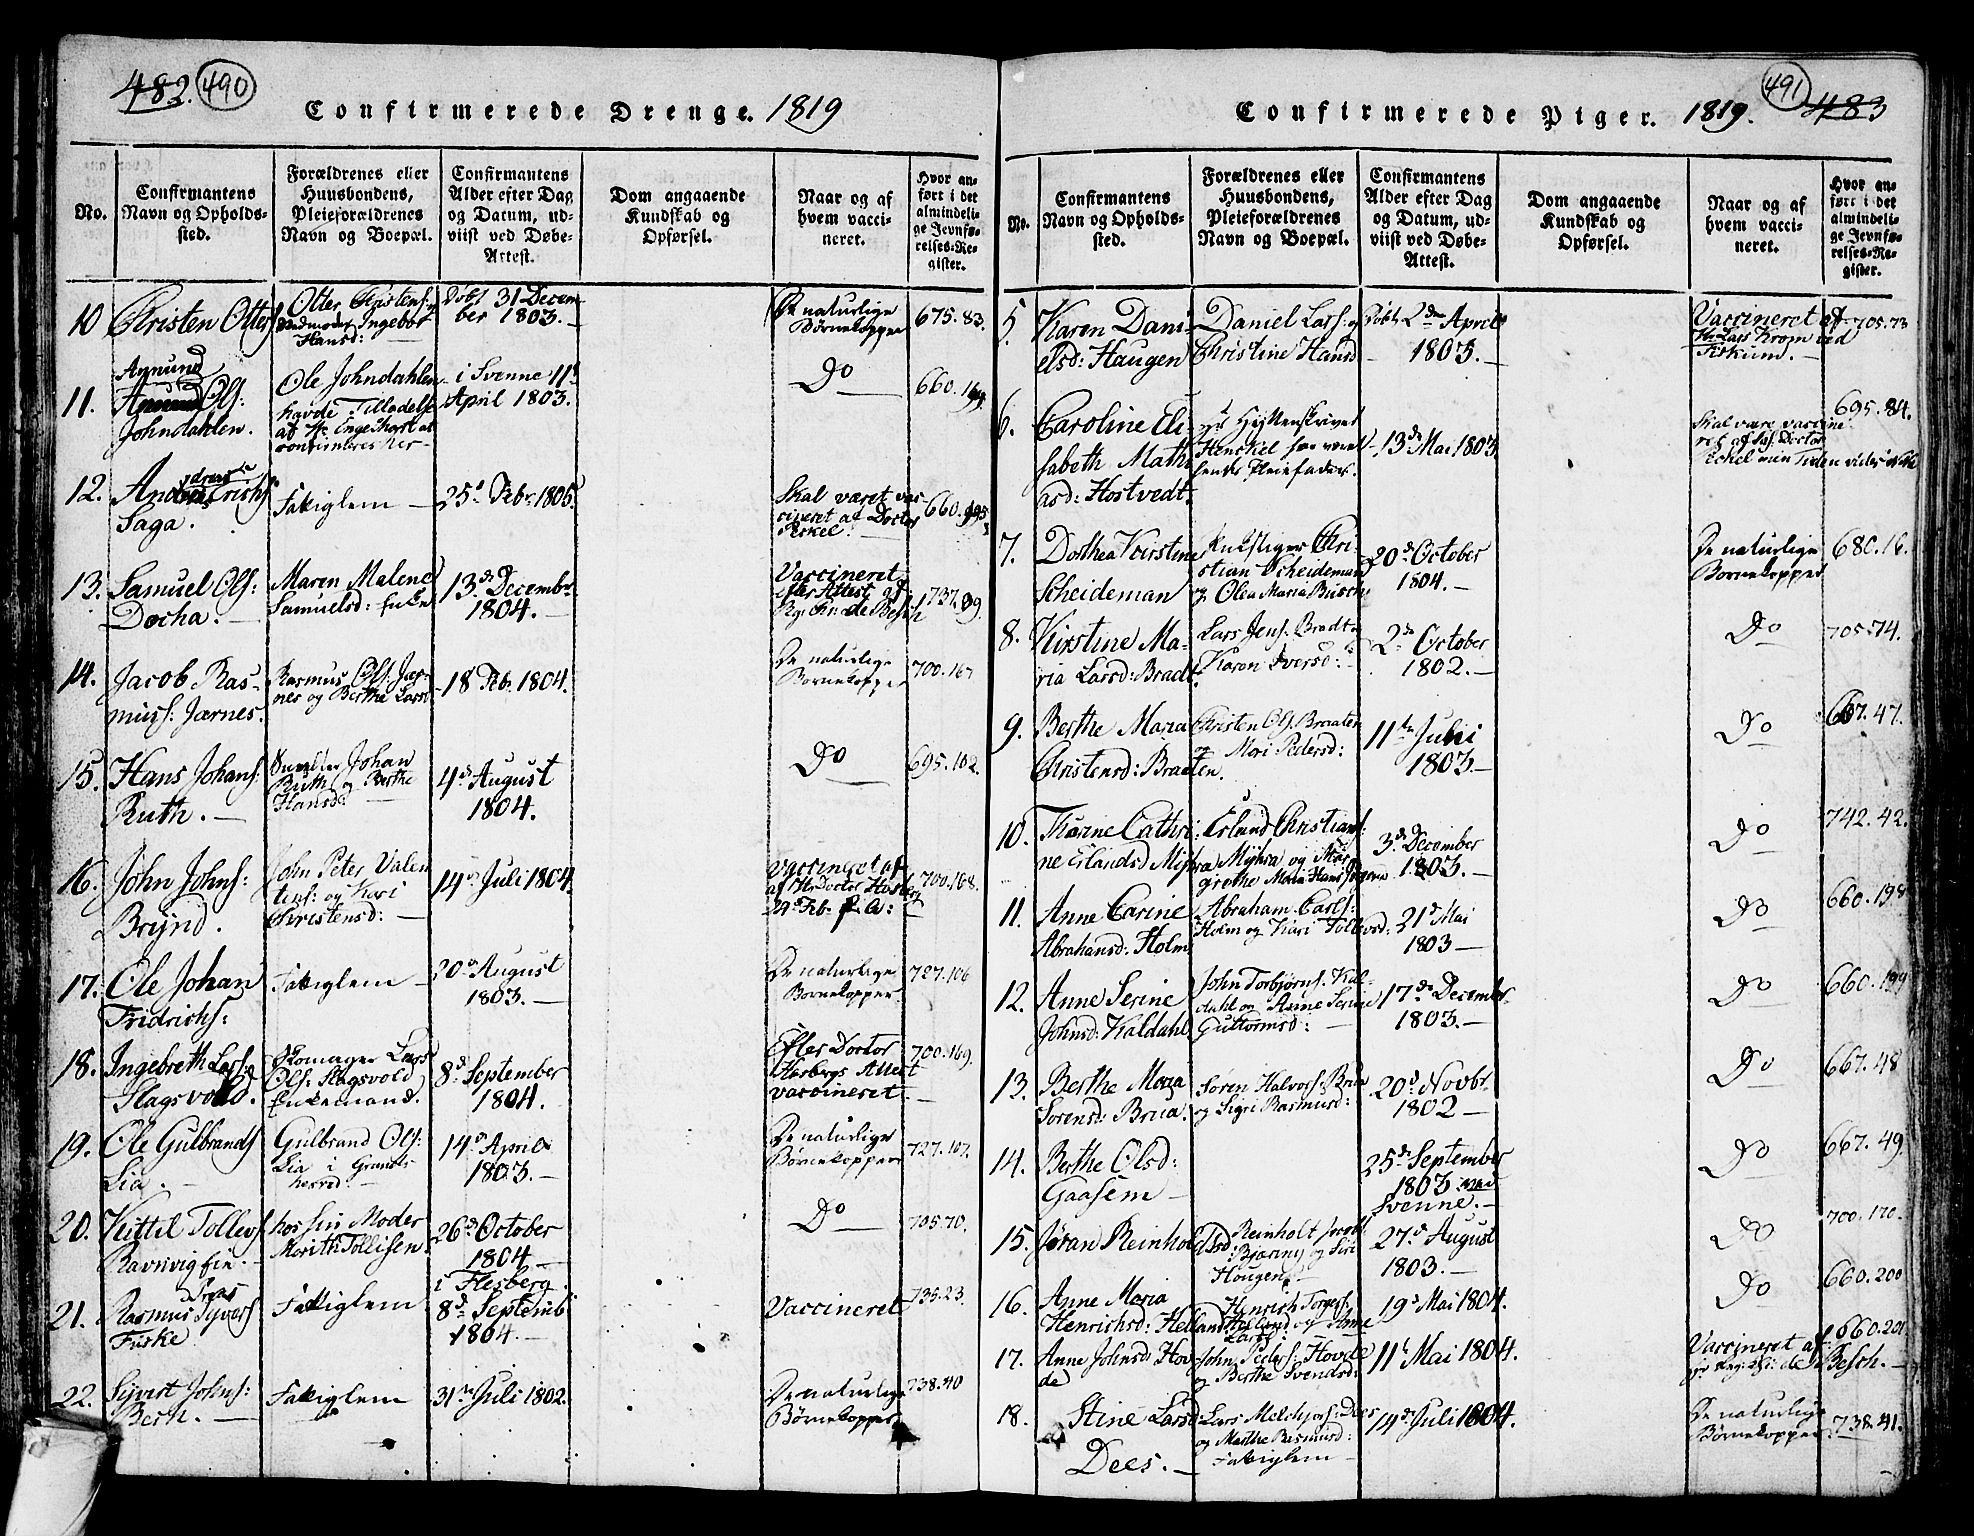 482. 490
Confirmerede Drenge. 1819
No.
Confirmantens
Navn og Opholds-
sted.
Forældrenes eller
Huusbondens,
Pleieforældrenes
Navn og Boepæl.
Confirmantens
Alder efter Dag
og Datum, ud-
viist ved Døbe-
Attest.
Dom angaaende
Kundskab og
Opførsel.
Naar og af
hvem vacci-
neret.
Hvor an-
ført i det
almindeli-
ge Jevnfø-
relses-Re-
gister.
10 Christen Otters
Otter Christens:
Ingebor
Hansd:
Døbt 31 Decem
ber 1803.
De naturlige
Børnekopper
675.83.
11. Amund Ols:
Johndahlen.
Ole Johndahlen
havde Tilladelse
af Hr Engelhart at
confirmeres her
i Svenne 11t
April 1803.
Do
660.194.
12. Anders Erichs
Saga.
Fattiglem
25d Febr. 1805.
Skal været vac-
cineret af Doctor
Peckel.
660.195
13. Samuel Ols:
Docha.
Maren Malene
Samuelsd: Enke
13de Decembr.
1804.
Vaccineret
efter Attest af
de Besch
737.39.
14. Jacob Ras-
muss: Jærnes.
Rasmus Ols: Jær-
nes og Berthe Larsd
18 Feb. 1804.
De naturlige
Børnekopper
700.167
15. Hans Johans:
Ruth.
Johan
Ruth og Berthe
Hansd:
4de August
1804.
Do
695.102.
16. John Johns:
Brynd.
John Peter Valen
tins: og Kari
Christensd:
14de Juli 1804
Vaccineret af
af Hr Doctor Hosberg
29de Feb. f. A:
700.168.
17. Ole Johan
Fridrichs:
Fattiglem
20de August
1803.
De naturlige
Børnekopper.
727.106
18. Ingebreth Lars:
Slagsvold.
Skomager Lars
Ols: Slagsvold
Enkemand.
8de September
1804.
Efter Doctor
Hosbergs Attest
vaccineret
700.169.
19. Ole Gulbrands
Lia.
Gulbrand Ols:
Lia i Grans-
herred.
14de April
1803.
De naturlige
Børnekopper
727.107.
20. Kittil Tollevs
Ravnvigfie.
hos sin Moder
Morith Tollisen.
26de October
1804
i Flesberg.
Do
705.70.
21. Rasmus Syvers
Fiske
Fattiglem
8de Septemb:
1804.
Vaccineret
735.23.
22. Sivert Johns:
Besh.
Fattiglem
31te Juli 1802.
De naturlige
Børnekopper
738.40
491 483
Confirmerede Piger. 1819.
No.
Confirmantens
Navn og Opholds-
sted.
Forældrenes eller
Huusbondens,
Pleieforældrenes
Navn og Boepæl.
Confirmantens
Alder efter Dag
og Datum, ud-
viist ved Døbe-
Attest.
Dom angaaende
Kundskab og
Opførsel.
Naar og af
hvem vacci-
neret.
Hvor an-
ført i det
almindeli-
ge Jevnfø-
relses-Re-
gister.
5. Karen Dani-
elsd: Haugen
Daniel Lars: og
Christine Hansd
Døbt 2den April
1803.
Vaccineret af
Hr Lars Krom ved
Fiskum.
705.73
6. Caroline Eli-
sabeth Mathi-
asd: Hostvedt.
Hr Hyttenskriver
Henckel har været
hendes Pleiefader.
13de Mai 1803
Skal være vaccine
ret af Doctor
Peckel men Tiden vides ikke
695.84.
7. Dorthea Kirstine
Scheideman
Chri-
stian Scheideman
og Olea Maria Busch
20de October
1804.
De naturlige
Børnekopper
680.16.
8. Kirstine Ma-
ria Larsd: Bradt.
Lars Jens: Bradt
Karen Iversd:
2de October
1802.
Do
705.74.
9. Berthe Maria
Christensd: Braaten.
Christen Ols: Braaten
og Mari Pedersd:
11te Julii
1803.
Do
667.47.
10. Karine Cathri-
ne Erlandsd Myhra
Erland Christians:
Myhra og Mar
grethe Maria
3de December
1803.
Do
742.42.
11. Anne Carine
Abrahansd: Holm
Abraham Carls:
Holm og Kari Tollevsd:
21de Mai
1803
Do
660.198
12. Anne Serine
Johnsd: Kaldahl
John Torbjørns: Kal-
dahl og Anne Serine
Guttormsd:
17de Decembr.
1803.
Do
660.199
13. Berthe Maria
Sørensd: Brua.
Søren Halvors: Brua
og Sigri Rasmusd:
20de Novbr.
1802
Do
667.48
14. Berthe Olsd:
Gaasem
25de September
1803 ved
Svenne.
Do
667.49.
15. Jøran Reinholdsd:
Reinholt Jacobs:
Bjøring og Siri
Hougen
27de August
1803.
Do
700.170.
16. Anne Maria
Henrichsd: Helland
Henrich Torgers:
Helland og Anne
Larsd:
19de Mai 1804.
Do
660.200
17. Anne Johnsd: Hov-
de
John Peders: Hovde
og Berthe Svendsd:
11t Mai 1804.
Vaccineret af
de Besch.
660.201
18. Stine Larsd:
Dees.
Lars Melchiors: Dees
og Marthe Rasmusd:
Fattiglem
14de Juli 1804.
De naturlige
Børnekopper.
738.41.